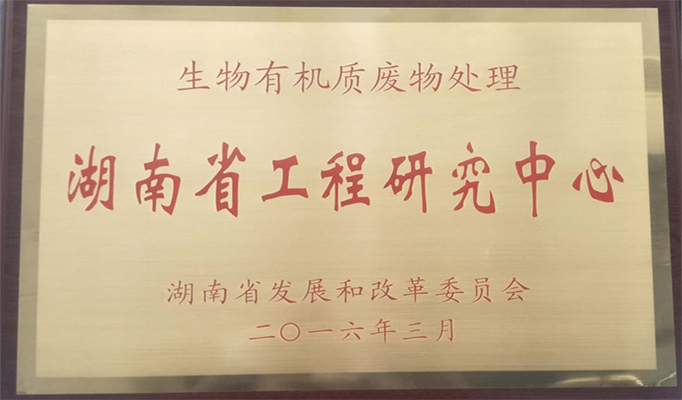 生物有机质废物处理
湖南省工程研究中心
湖南省发展和改革委员会
二〇一六年三月